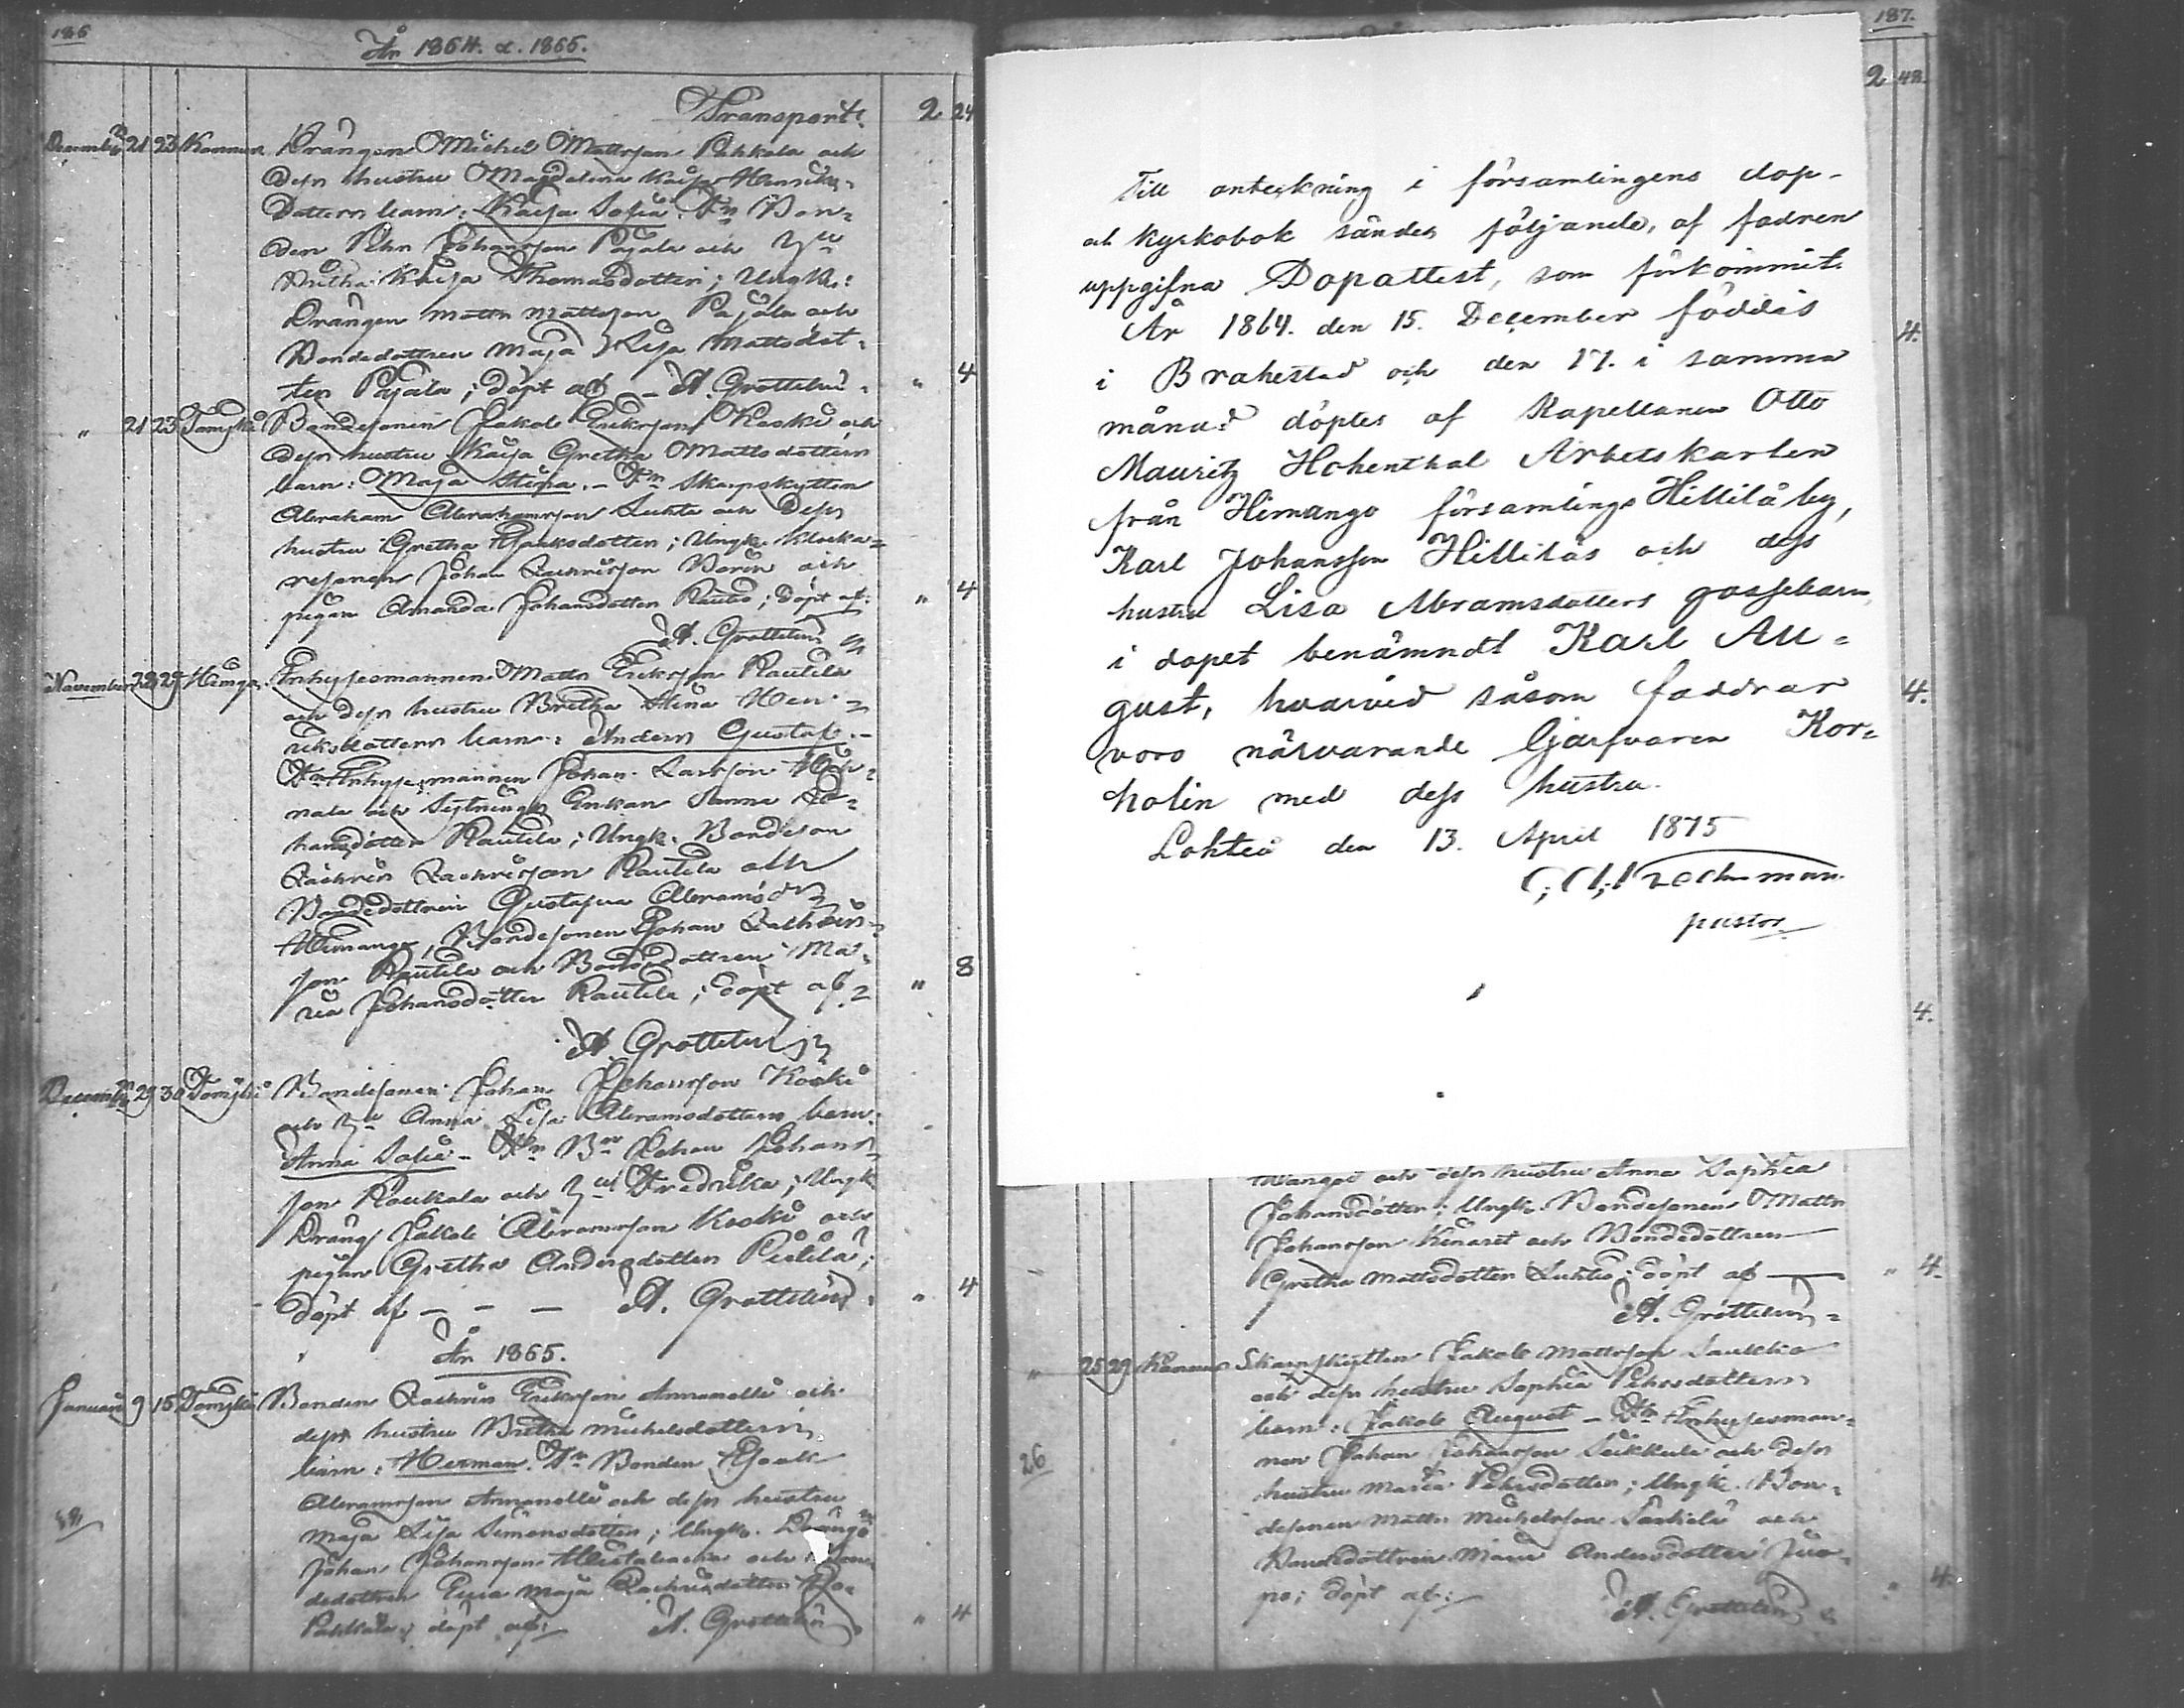 186
År 1864. o. 1865.
Transport. 2 24
December 21 23 Kannus Drängen Michel Mattsson Pahkala och
dess hustru Magdalena Kaisa Henriks-
dotters barn: Kaisa Sofia. Fn Bon-
den Pehr Johansson Pajala och hu
Britha Kaisa Thomasdotter; Ungk.:
Drängen Matts Mattsson Pajala och
Bondedottren Maja Lisa Mattsdot-
ter Pajala; döpt af – A. Grottelin. " 4
" 21 23 Tomujoki Bondesonen Jakob Eriksson Koski och
dess hustru Kaisa Gretha Mattsdotters
barn: Maja Stina. – Fn Skarpskytten
Abraham Abrahamsson Luhta och dess
hustru Gretha Jaaksdotter; Ungk. Klocka-
resonen Johan Zachrisson Borin och
pigan Amanda Johansdotter Rautio; döpt af: " 4
A. Grottelin
November 28 29 Himga. Inhysesmannen Matts Eriksson Rautila
och dess hustru Britha Stina Hen-
riksdotters barn: Anders Gustaf. –
Fn Inhysesmannen Johan Larsson
och Sytnings Enkan Sanna Jo-
hansdotter Rautila; Ungk. Bondeson
Zachris Zachrisson Rautila och
Bondedottren Gustafva Abramsdr
Himango, Bondesonen Johan Zachris-
son Rautila och Bondedottren Ma-
ria Johansdotter Rautila; döpt af " 8
A. Grottelin
December 29 30 Tomujoki Bondesonen Johan Johansson Koski
och hu Anna Lisa Abramsdotters barn:
Anna Sofia – Fn Bn Johan Johans-
son Raukala och hu Fredrika; Ungk.
Dräng Jakob Abramsson Koski och
pigan Gretha Andersdotter Pietila;
döpt af – – – A. Grottelin. " 4
År 1865.
Januari 9 15 Tomujoki Bonden Zachris Eriksson Ainnonelli och
dess hustru Britha Michelsdotters
barn: Herman. Fn Bonden Isak
Abramsson Ainnonelli och dess hustru
Maja Lisa Simonsdotter; Ungk. Dräng
Johan Johansson och
dedottren Eva Maja Zachrisdotter
Pahkala; döpt af: A. Grottelin " 4
187.
2 48.
Till anteckning i församlingens dop-
och kyrkobok sändes följande, af fadren
uppgifna Dopattest, som förkommit.
År 1864. den 15. December föddes
i Brahestad och den 17. i samma
månad döptes af Kapellanen Otto
Mauritz Hohenthal Arbetskarlen
från Himango församlings Hillilä by,
Karl Johansson Hillilås och dess
hustru Lisa Abramsdotters gossebarn,
i dopet benämndt Karl Au-
gust, hvarvid såsom faddrar
voro närvarande Garfvaren Kor-
holin med dess hustru.
Lohteå den 13. April 1875
pastor
4.
4.
4.
och dess hustru Anna Sophia
Johansdotter; Ungk. Bondesonen Matts
Johansson Kinaret och Bondedottren
Gretha Mattsdotter Luhta; döpt af — " 4.
A. Grottelin
" 25 29 Kannus Skarpskytten Jakob Mattsson Saukko
och dess hustru Sophia Pehrsdotters
barn: Jakob August – Fn Inhysesman-
nen Johan Johansson Seikkula och dess
hustru Maria Pehrsdotter; Ungk. Bon-
26
desonen Matts Michelsson Särkelä och
Bondedottren Maria Andersdotter Juo-
po; döpt af: A. Grottelin " 4.